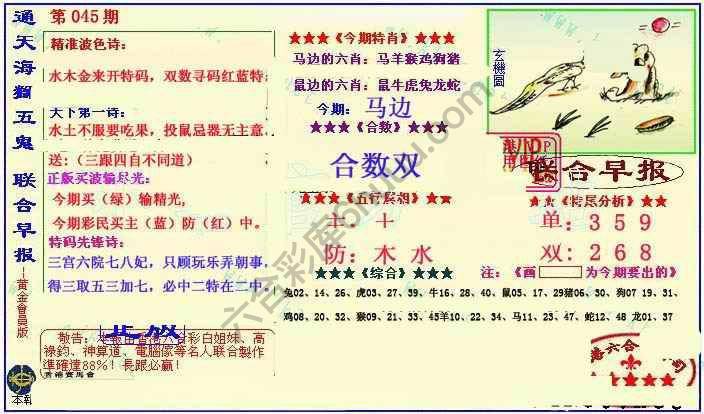 通天海狮五鬼 联合早报
—黄金會員版
第045期
精准波色诗:
水木金来开特码,双数寻码红蓝特.
天下第一诗:
水土不服要吃果,投鼠忌器无主意.
送:(三跟四自不同道)
正版买波输尽光:
今期买(绿)输精光,
今期彩民买主(蓝)防(红)中。
特码先锋诗:
三宫六院七八妃,只顾玩乐弄朝事,
得三取五三加七,必中二特在二中.
敬告:本報由香港六合彩白姐妹、高
祿鈞、神算道、電腦條等名人联合製作
準確達88%!長跟必贏!
香港賽馬會
★★★《今期特肖》★★★
马边的六肖:马羊猴鸡狗猪
鼠边的六肖:鼠牛虎兔龙蛇
今期:马边
★★★《合数》★★★
合数双
★★★《五行展望》★★★
主:土
防:木 水
★★★《综合》★★★
玄機圖
联合早报
★★《特尾分析》★★
单:359
双:268
注:《画 为今期要出的》
兔02、14、26、虎03、27、39、牛16、28、40、鼠05、17、29猪06、30、狗07、19、31、
鸡08、20、32、猴09、21、33、45羊10、22、34、马11、23、47、蛇12、48 龙01、37
六合
★★★★